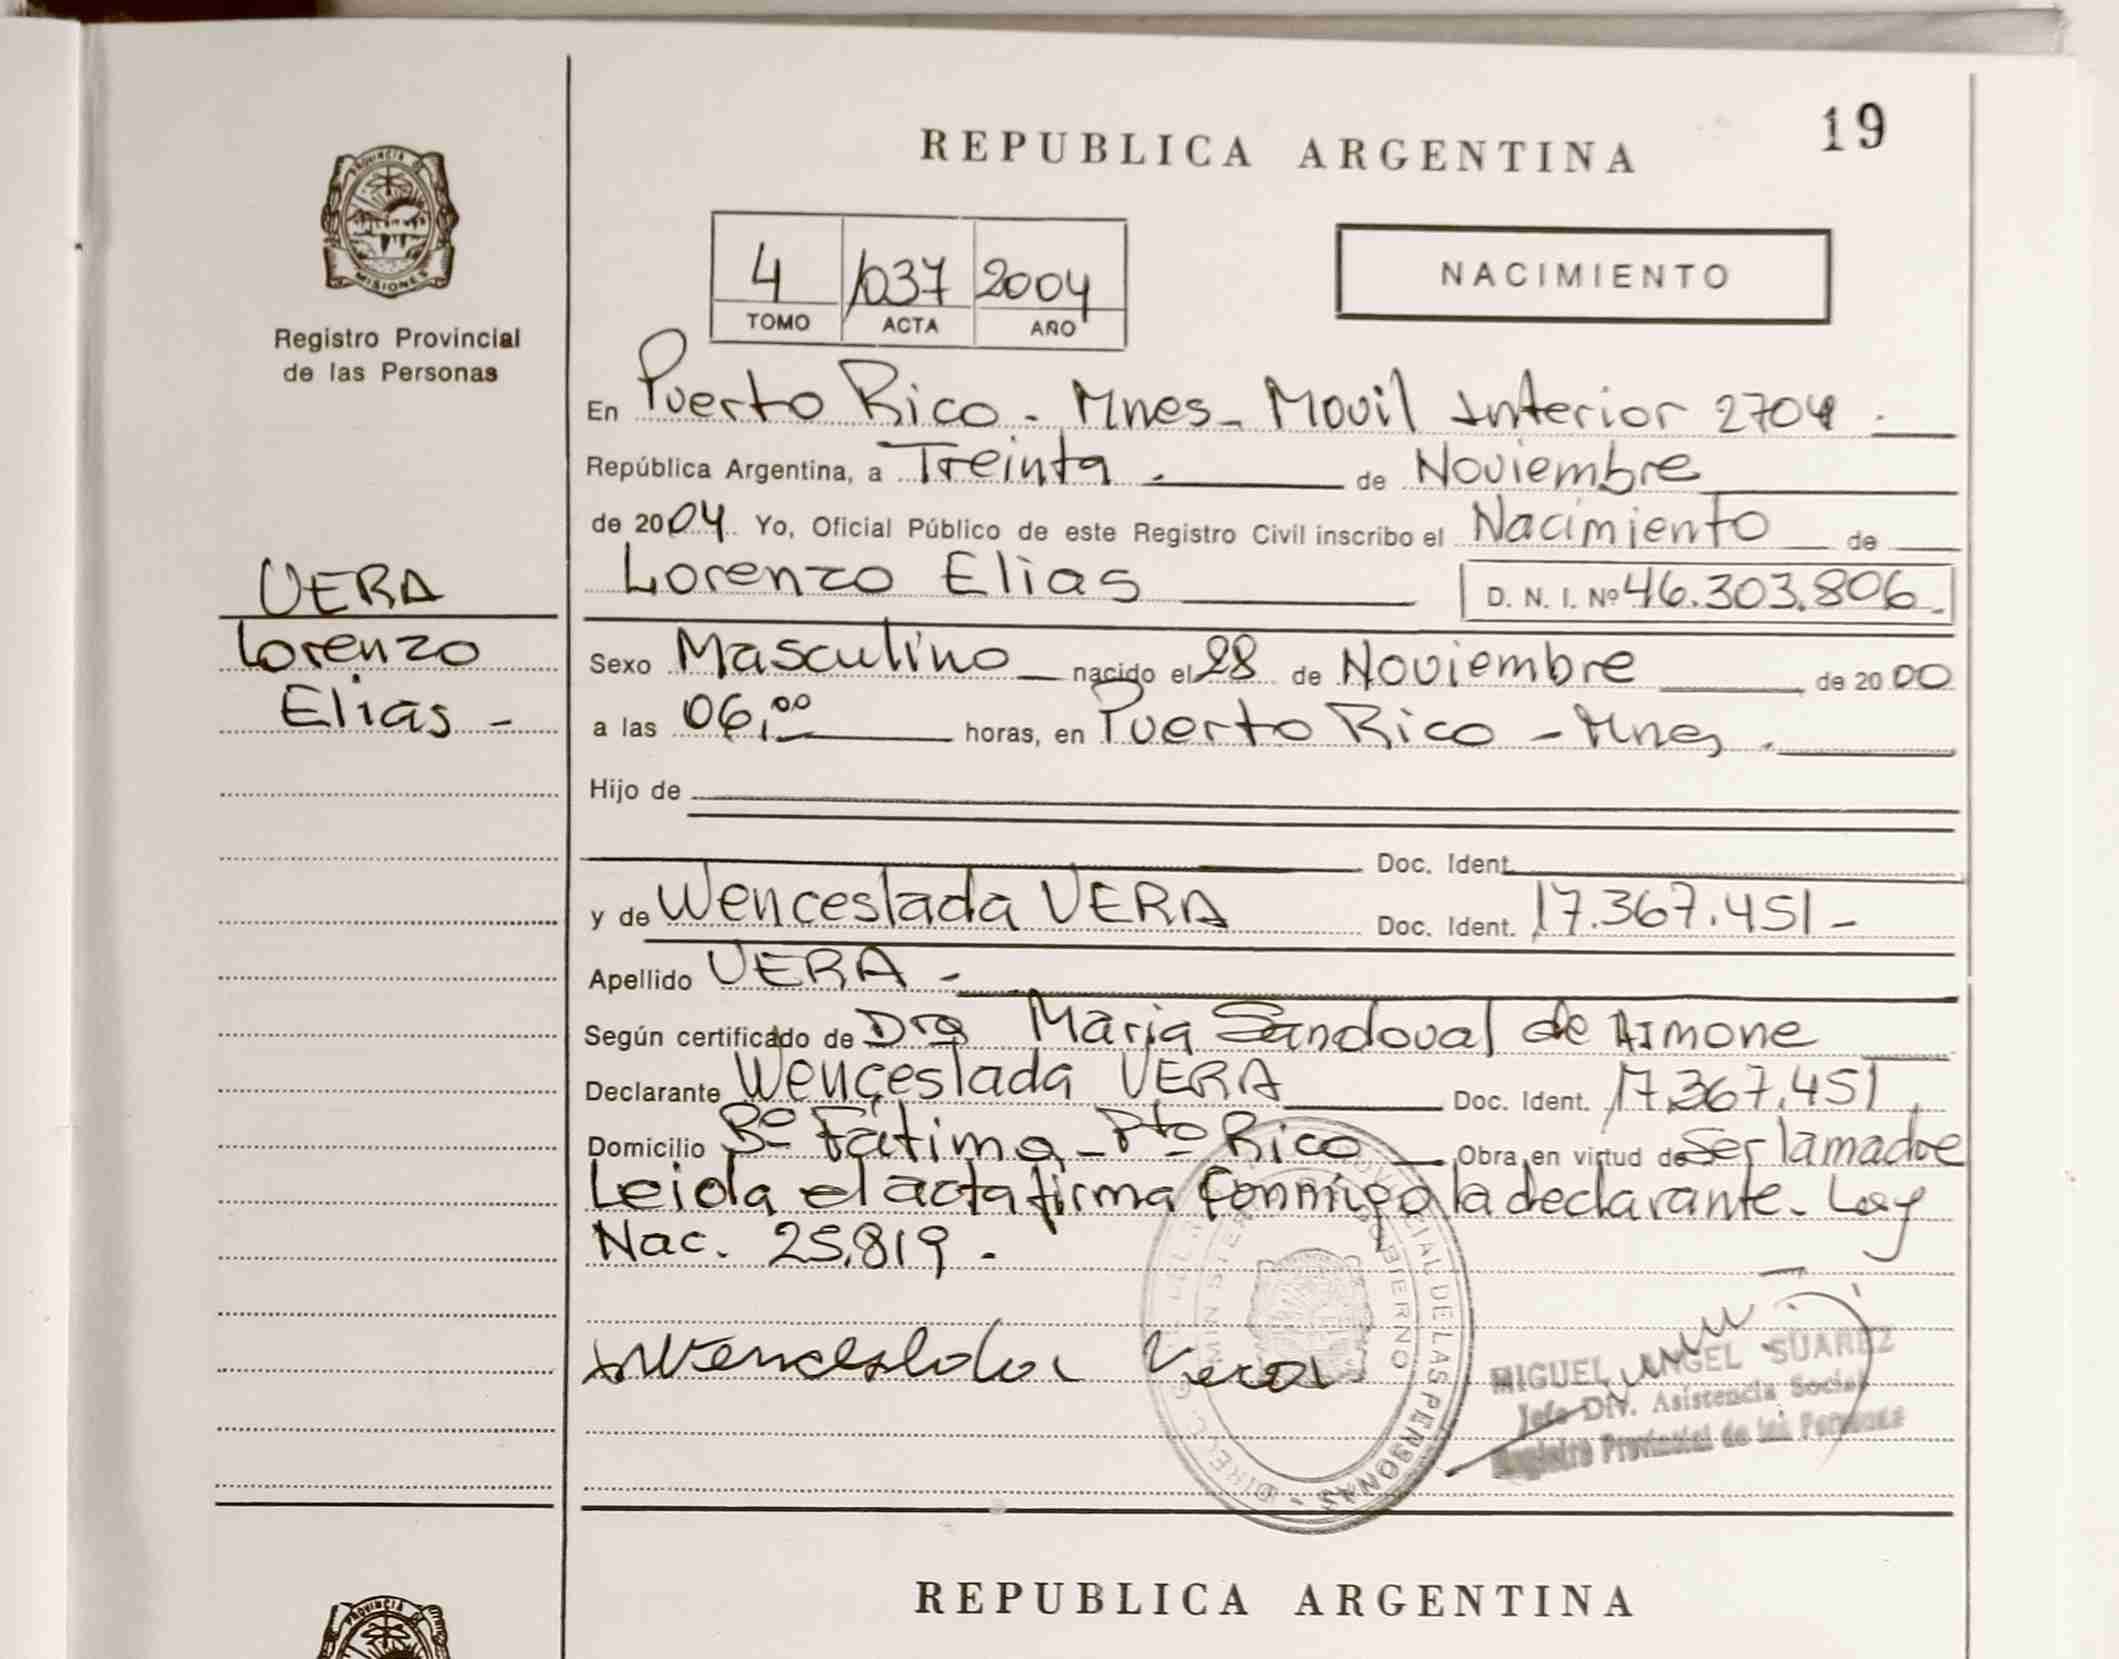 19
REPUBLICA ARGENTINA
PROVINCIA DE
MISIONES
Registro Provincial
de las Personas
4 /037 2004
TOMO ACTA AÑO
NACIMIENTO
En Puerto Rico - Mnes - Movil Interior 2704 .
República Argentina, a Treinta . de Noviembre
de 2004 Yo, Oficial Público de este Registro Civil inscribo el Nacimiento de
Lorenzo Elias D. N. I. Nº 46.303.806.
VERA
Lorenzo
Elias -
Sexo Masculino nacido el 28 de Noviembre de 2000
a las 06,00 horas, en Puerto Rico - Mnes .
Hijo de
Doc. Ident.
y de Wenceslada VERA Doc. Ident. 17.367.451 -
Apellido VERA -
Según certificado de Dra Maria Sandoval de Aimone
Declarante Wenceslada VERA Doc. Ident. 17.367.451
Domicilio Bº Fátima - Pto Rico Obra en virtud de Ser la madre
Leida el acta firma conmigo la declarante. Ley
Nac. 25.819 -
Wenceslada Vera
MIGUEL ANGEL SUAREZ
Jefe Div. Asistencia Social
Registro Provincial de las Personas
REPUBLICA ARGENTINA
PROVINCIA DE